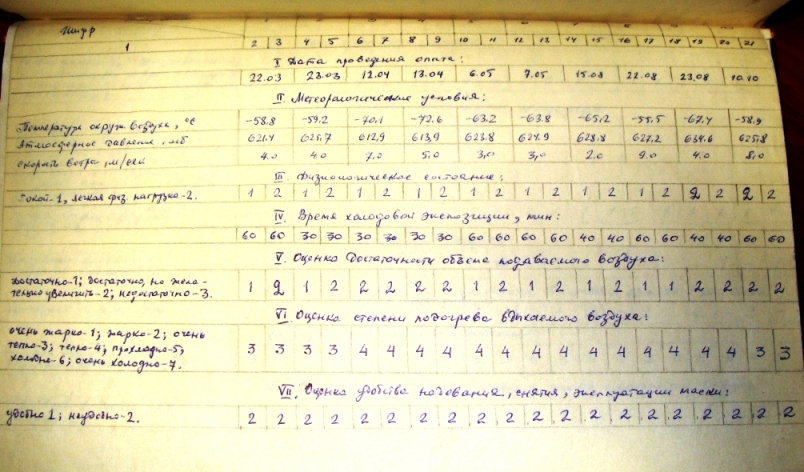 Шифр
1 2 3 4 5 6 7 8 9 10 11 12 13 14 15 16 17 18 19 20 21
I Дата проведения опыта:
22.03 23.03 12.04 13.04 6.05 7.05 15.08 22.08 23.08 10.10
II Метеорологические условия:
Температура окруж. воздуха, °С -58.8 -59.2 -70.1 -72.6 -63.2 -63.8 -65.2 -55.5 -67.4 -58.9
Атмосферное давление, мб 621.4 625.7 612.9 613.9 623.8 624.9 628.8 627.2 634.6 625.8
скорость ветра, м/сек 4.0 4.0 7.0 5.0 3.0 3.0 2.0 9.0 4.0 8.0
III Физиологическое состояние:
Покой-1, легкая физ. нагрузка-2. 1 2 1 2 1 2 1 2 1 2 1 2 1 2 1 2 1 2 2 2
IV Время холодовой экспозиции, мин:
60 60 30 30 30 30 30 30 60 60 60 60 40 40 60 60 40 40 60 60
V. Оценка достаточности объема подаваемого воздуха:
достаточно-1; достаточно, но жела- 1 2 1 2 2 2 2 2 1 2 1 2 1 2 1 1 2 2 2 2
тельно увеличить-2; недостаточно-3.
VI Оценка степени подогрева вдыхаемого воздуха:
очень жарко-1; жарко-2; очень
тепло-3; тепло-4; прохладно-5; 3 3 3 3 4 4 4 4 4 4 4 4 4 4 4 4 4 4 3 3
холодно-6; очень холодно-7.
VII. Оценка удобства надевания, снятия, эксплуатации маски:
удобно 1; неудобно-2. 2 2 2 2 2 2 2 2 2 2 2 2 2 2 2 2 2 2 2 2